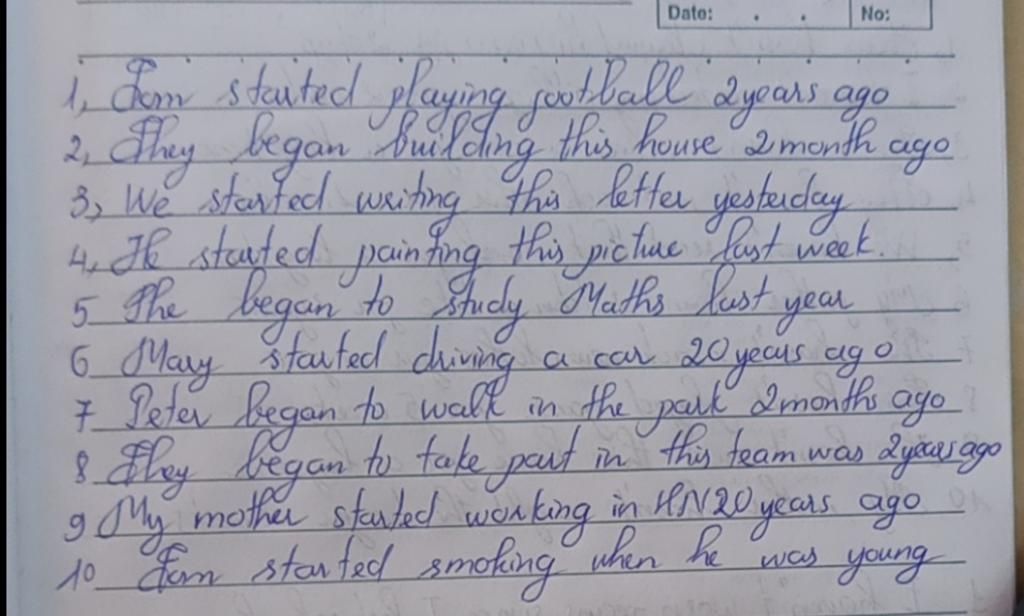 Date: . . No:
1, Tom started playing football 2 years ago
2, They began building this house 2 month ago
3, We started writing this letter yesterday
4, He started painting this picture last week.
5 She began to study Maths last year
6 Mary started driving a car 20 years ago
7 Peter began to walk in the park 2 months ago
8 They began to take part in this team was 2 years ago
9 My mother started working in HN 20 years ago
10 Tom started smoking when he was young